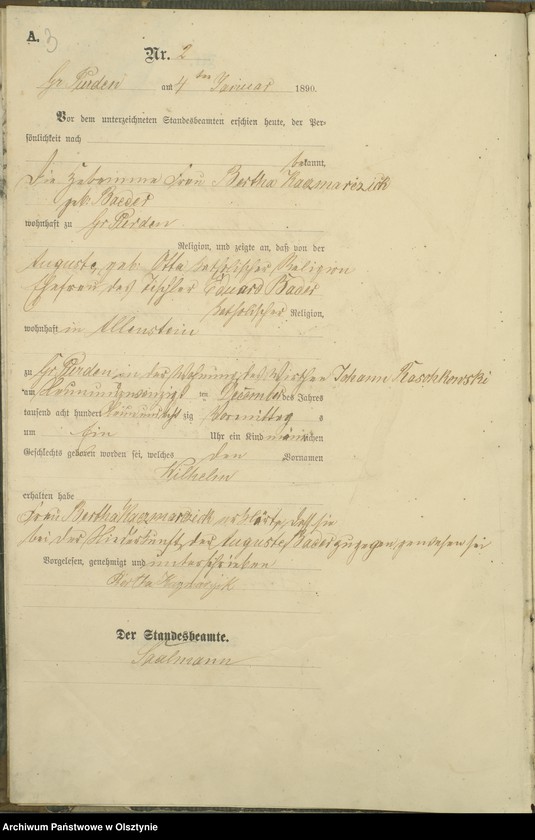 A. 3
Nr. 2
Gr Purden am 4ten Januar 1890.
Vor dem unterzeichneten Standesbeamten erschien heute, der Per=
sönlichkeit nach
bekannt,
die Hebamme Frau Bertha
geb. Baeder
wohnhaft zu Gr Purden
Religion, und zeigte an, daß von der
Auguste, geb. Otta, katholischer Religion
Ehefrau des Tischler Eduard Bader
katholischer Religion,
wohnhaft in Allenstein
zu Gr Purden in der Wohnung des Wirthen Johann Raschkowski
am neunundzwanzigsten Dezember des Jahres
tausend acht hundert neunundachtzig Vormittag s
um Ein Uhr ein Kind männlichen
Geschlechts geboren worden sei, welches den Vornamen
Wilhelm
erhalten habe
Frau Bertha erklärte, daß sie
bei der Niederkunft der Auguste Bader zugegen gewesen sei
Vorgelesen, genehmigt und unterschrieben
Bertha
Der Standesbeamte.
Saalmann
Archiwum Państwowe w Olsztynie